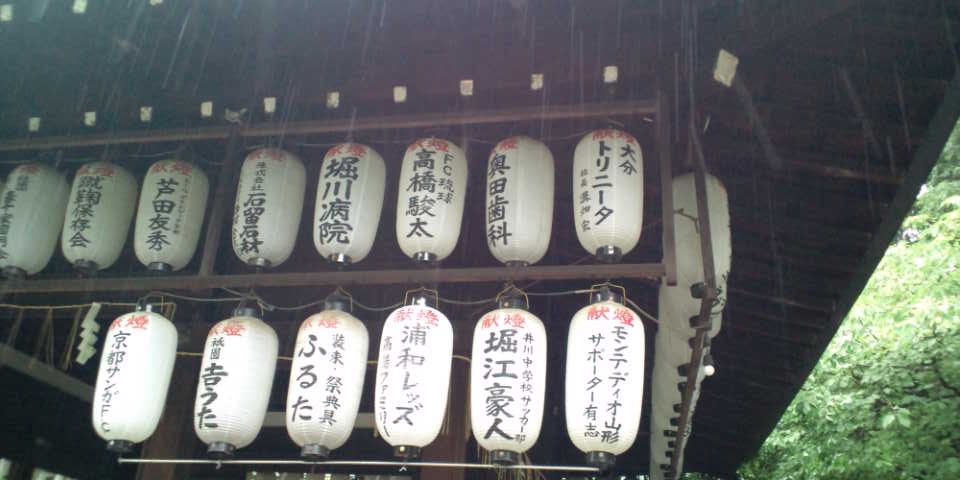 献燈
蹴鞠保存会
献燈
芦田友秀
献燈
株式会社
石留石材
献燈
堀川病院
献燈
FC琉球
高橋駿太
献燈
奥田歯科
献燈
大分
トリニータ
社長
献燈
京都サンガFC
献燈
祇園
吉うた
献燈
装束・祭典具
ふるた
献燈
浦和レッズ
献燈
井川中学校サッカー部
堀江豪人
献燈
モンテディオ山形
サポーター有志